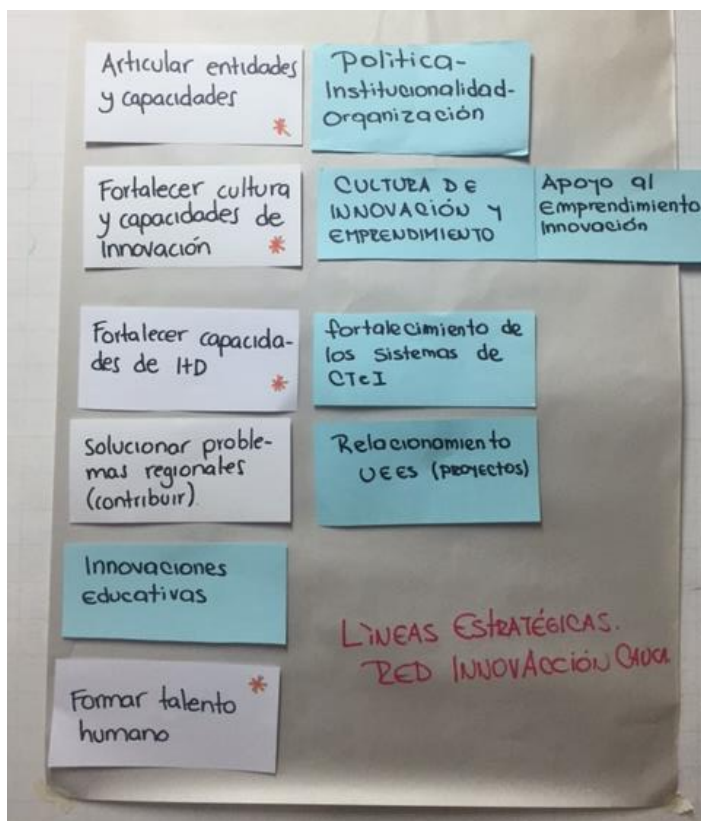 Articular entidades
y capacidades
*
Política-
Institucionalidad-
Organización
Fortalecer cultura
y capacidades de
Innovación *
CULTURA DE
INNOVACIÓN Y
EMPRENDIMIENTO
Apoyo al
Emprendimiento
Innovación
Fortalecer capacida-
des de I+D
*
fortalecimiento de
los sistemas de
CTeI
Solucionar proble-
mas regionales
(contribuir).
Relacionamiento
UEES (PROYECTOS)
Innovaciones
Educativas
Formar talento *
humano
LÍNEAS ESTRATÉGICAS.
RED INNOVACCIÓN CAUCA